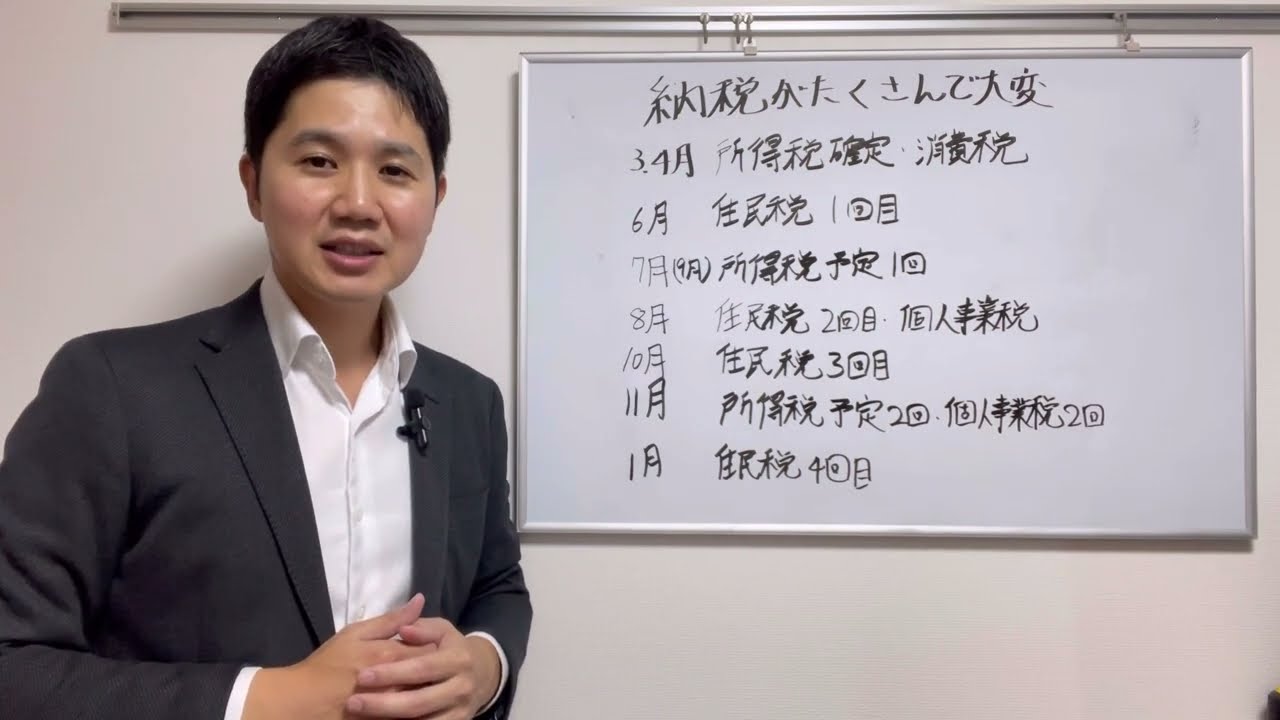 納税がたくさんで大変
3.4月 所得税確定・消費税
6月 住民税 1回目
7月(9月) 所得税予定1回
8月 住民税 2回目・個人事業税
10月 住民税3回目
11月 所得税予定2回・個人事業税2回
1月 住民税4回目